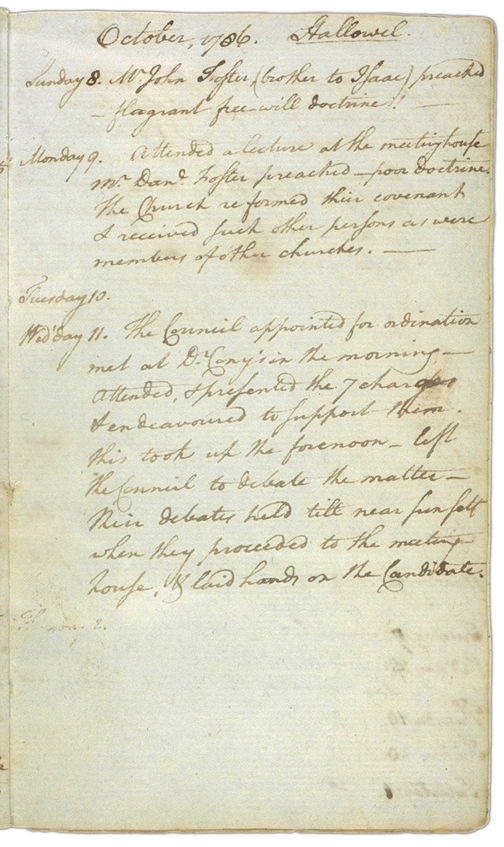 October, 1786. Hallowel.
Sunday 8. Mr John Foster, (brother to Isaac) preached
– flagrant free-will doctrine!! —
Monday 9. Attended a lecture at the meeting house
Mr. Danl. Foster preached – poor doctrine.
The Church re formed their covenant
& received such other persons as were
members of other churches. —
Tuesday 10.
Wed'day 11. The Council appointed for ordination
met at Dr. Cony's in the morning –
Attended, & presented the 7 charges
& endeavoured to support them.
this took up the forenoon – left
the Council to debate the matter –
Their debates held till near sun sett
when they proceeded to the meeting
house, & laid hands on the Candidate.